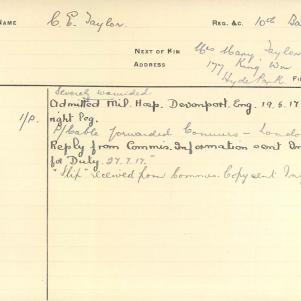 NAME C. E. Taylor. REG. &C. 10th Ba
NEXT OF KIN Mrs Mary Taylor
ADDRESS 177 King Wm
Hyde Park
Severely wounded
Admitted Mil. Hosp. Devonport, Eng. 19.6.17
1/p. right leg.
P/Cable forwarded Commrs – London
Reply from Commis. Information sent
for Duty. 27.7.17."
"Slip" received from Commis. Copy sent